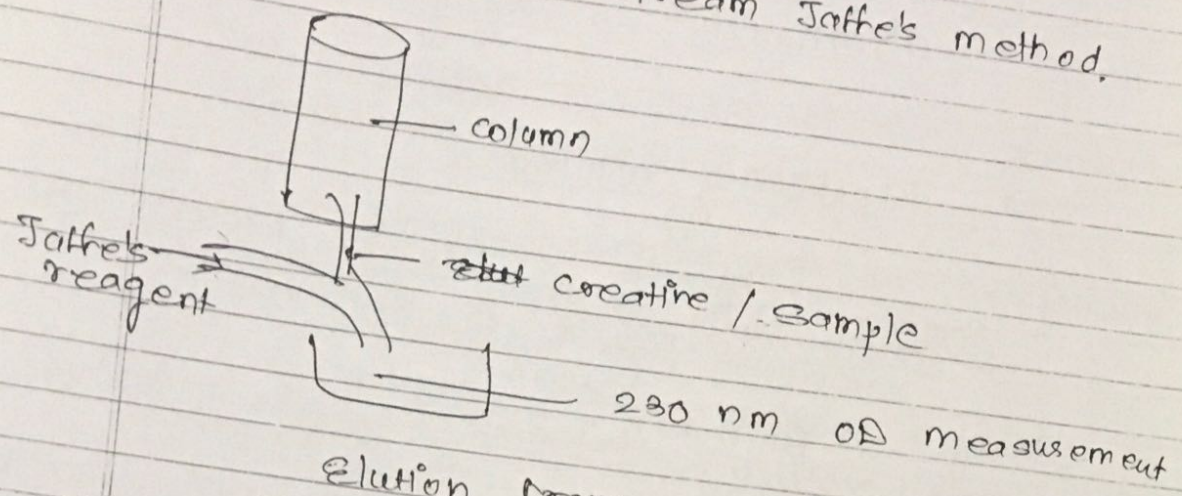 Jaffe's method.
column
Jaffe's
reagent
creatine / sample
230 nm OD measurement
Elution